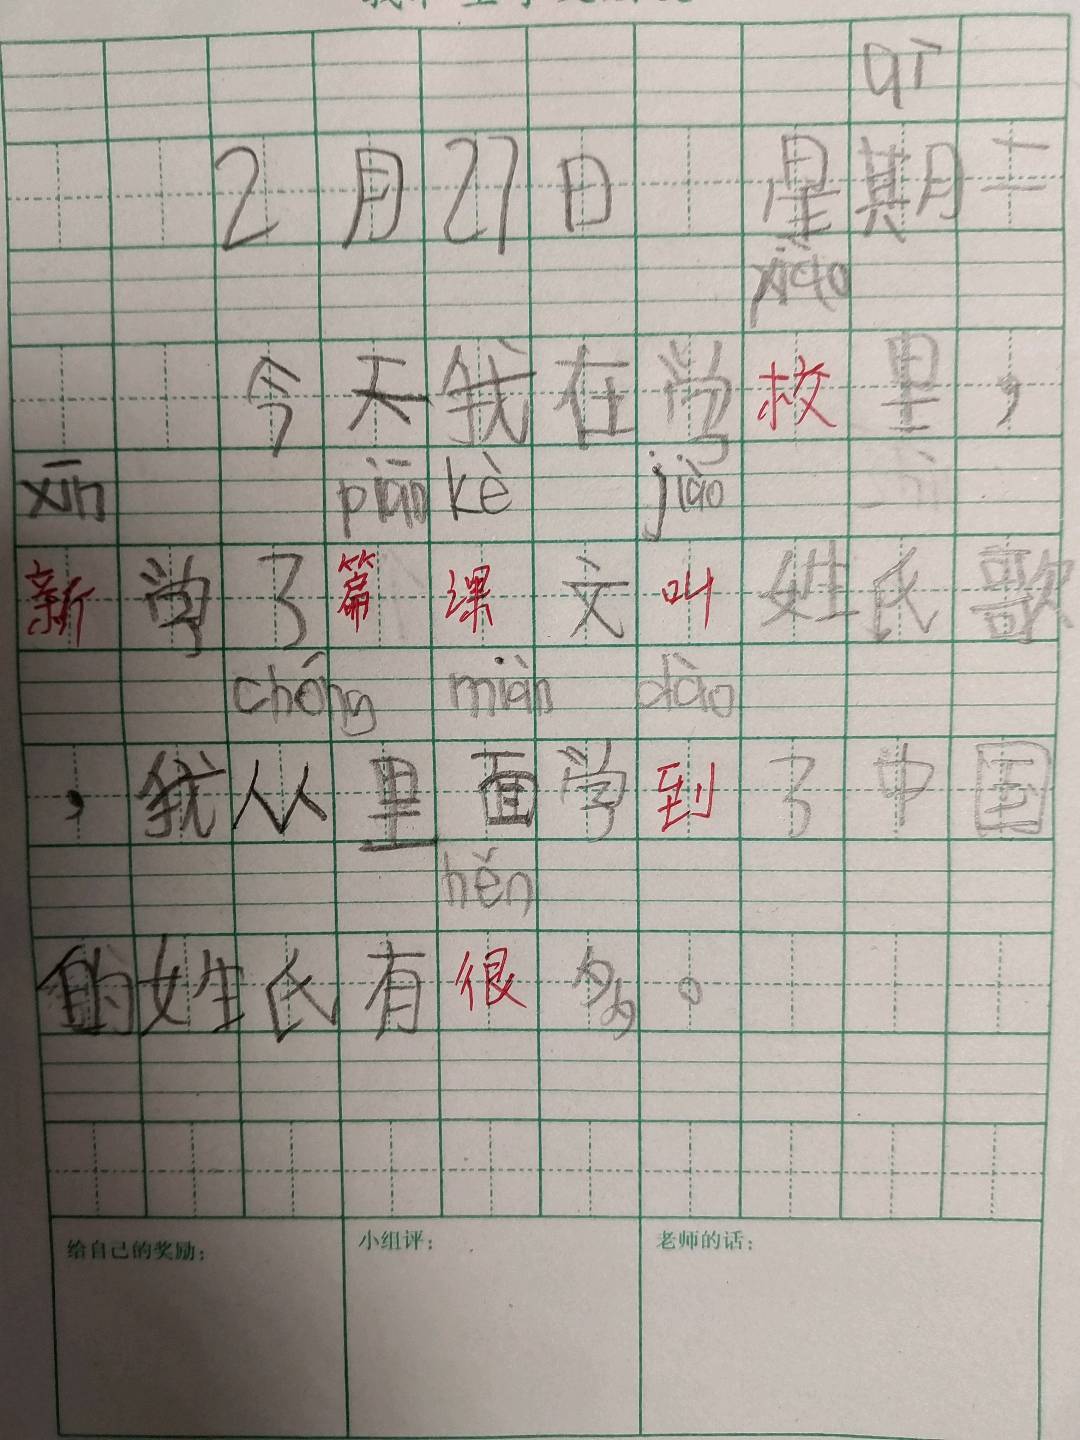 qī
2月27日 星期二
xiào
今天我在学校里，
xīn piān kè jiào
新学了篇课文叫姓氏歌
chóng miàn dào
，我从里面学到了中国
hěn
的姓氏有很多。
给自己的奖励： 小组评： 老师的话：